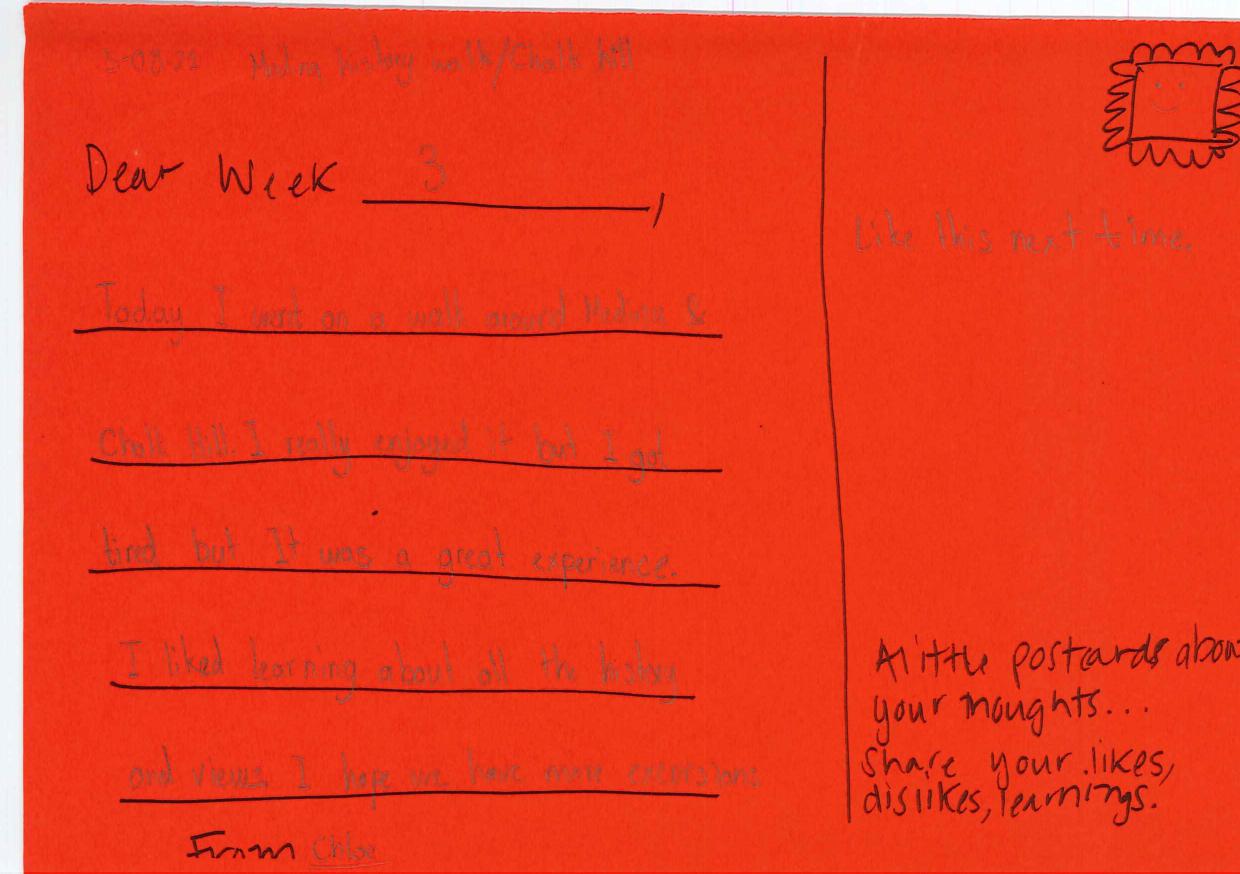 5-08-21 Medina history walk/Chalk hill
Dear Week 3,
Today I went on a walk around Medina &
Chalk Hill. I really enjoyed it but I got
tired but It was a great experience.
I liked learning about all the history
and views. I hope we have more excursions
From Chloe
Like this next time.
A little postcards abou
your thoughts...
share your likes,
dislikes, learnings.